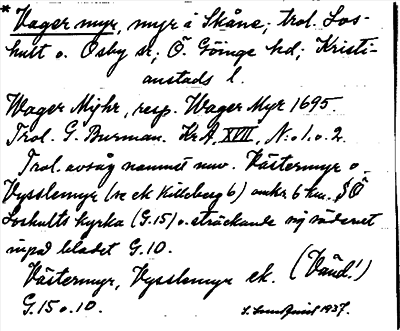 * Vager myr, myr i Skåne; trol. Los-
hult o. Osby sn; Ö Göinge hd; Kristi-
anstads l.
Wager Mÿhr, resp. Wager Myr 1695
Trol. G. Burman. Kr A, XVII, N:o 1 o. 2.
Trol. avsåg namnet nuv. Västermyr o.
Vysslemyr (se ek Killeberg 6) omkr. 6 km. SÖ
Loshults kyrka (G.15) o. sträckande sig söderut
inpå bladet G.10.
Västermyr, Vysslemyr ek. (Vänd!)
G.15 o. 10.
S. Lundquist 1937.